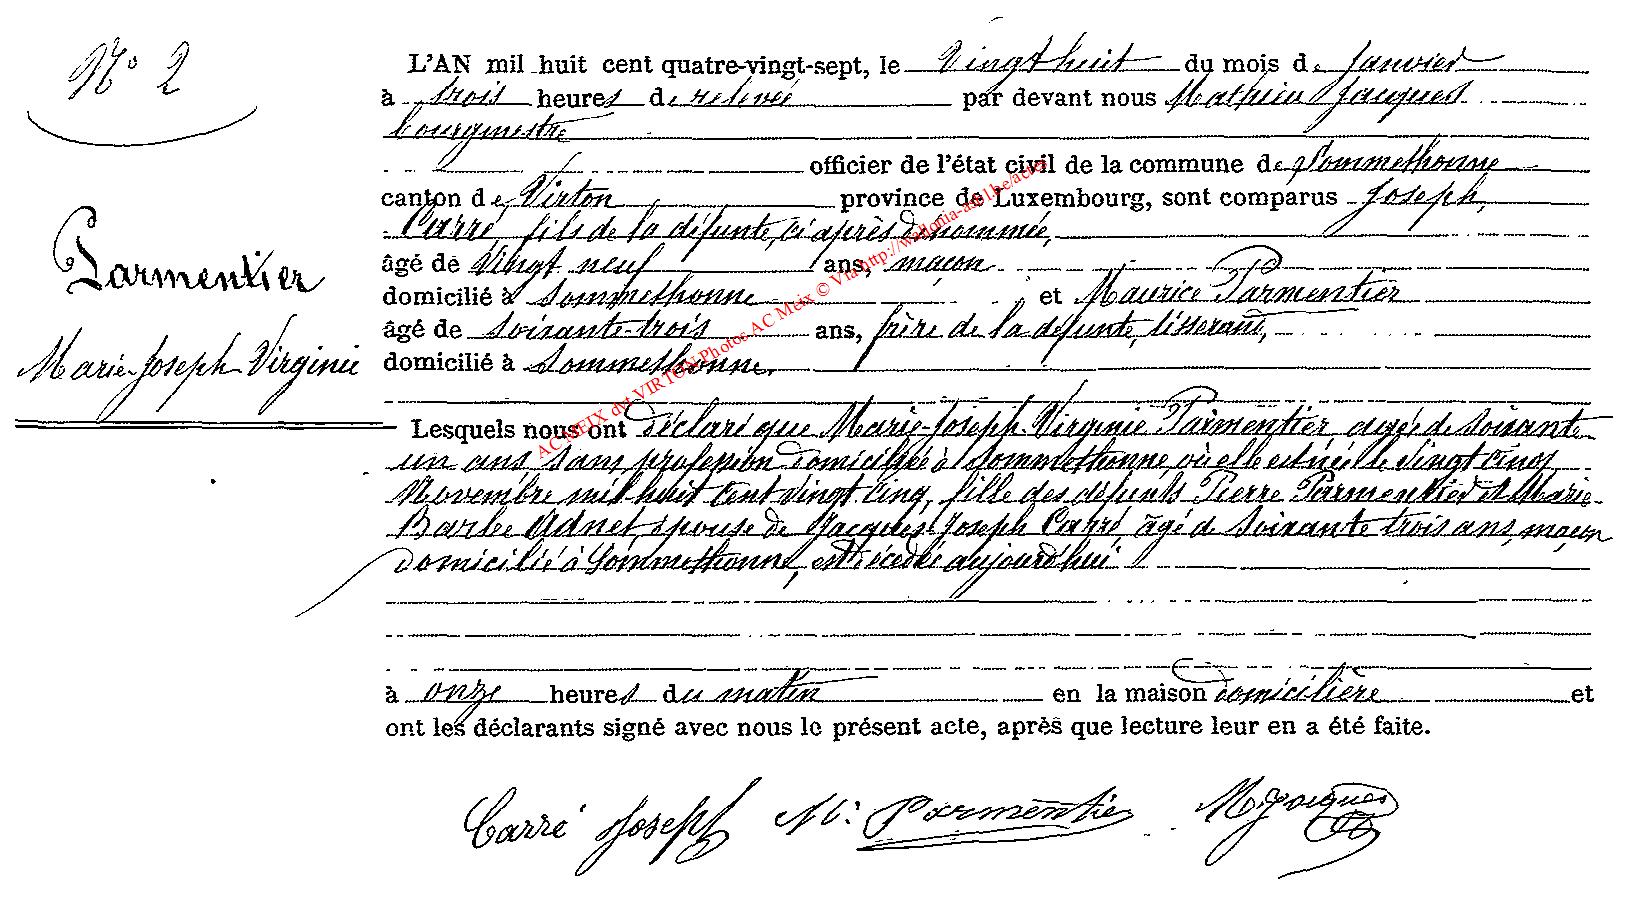 N° 2
Parmentier
Marie-Joseph Virginie
L'AN mil huit cent quatre-vingt-sept, le Vingt huit du mois de Janvier
à trois heures de relevée par devant nous Mathieu Jacques
bourgmestre
officier de l'état civil de la commune de Sommethonne
canton de Virton province de Luxembourg, sont comparus Joseph
Carré, fils de la défunte, ci après dénommée,
âgé de Vingt neuf ans, maçon
domicilié à Sommethonne et Maurice Parmentier
âgé de soixante-trois ans, frère de la défunte, tisserand,
domicilié à Sommethonne.
Lesquels nous ont déclaré que Marie-Joseph Virginie Parmentier, agée de soixante
un ans, sans profession domiciliée à Sommethonne où elle est née le vingt cinq
Novembre mil huit cent vingt cinq, fille des défunts Pierre Parmentier et Marie-
Barbe Adnet, épouse de Jacques Joseph Carré, âgé de soixante trois ans, maçon
domicilié à Sommethonne, est décédée aujourd'hui
à onze heures du matin en la maison domicilière et
ont les déclarants signé avec nous le présent acte, après que lecture leur en a été faite.
Carré Joseph M. Parmentier M Jacques
AC MEIX dvt VIRTON Photos AC Meix © Via http://wallonia-asbl.be/actes